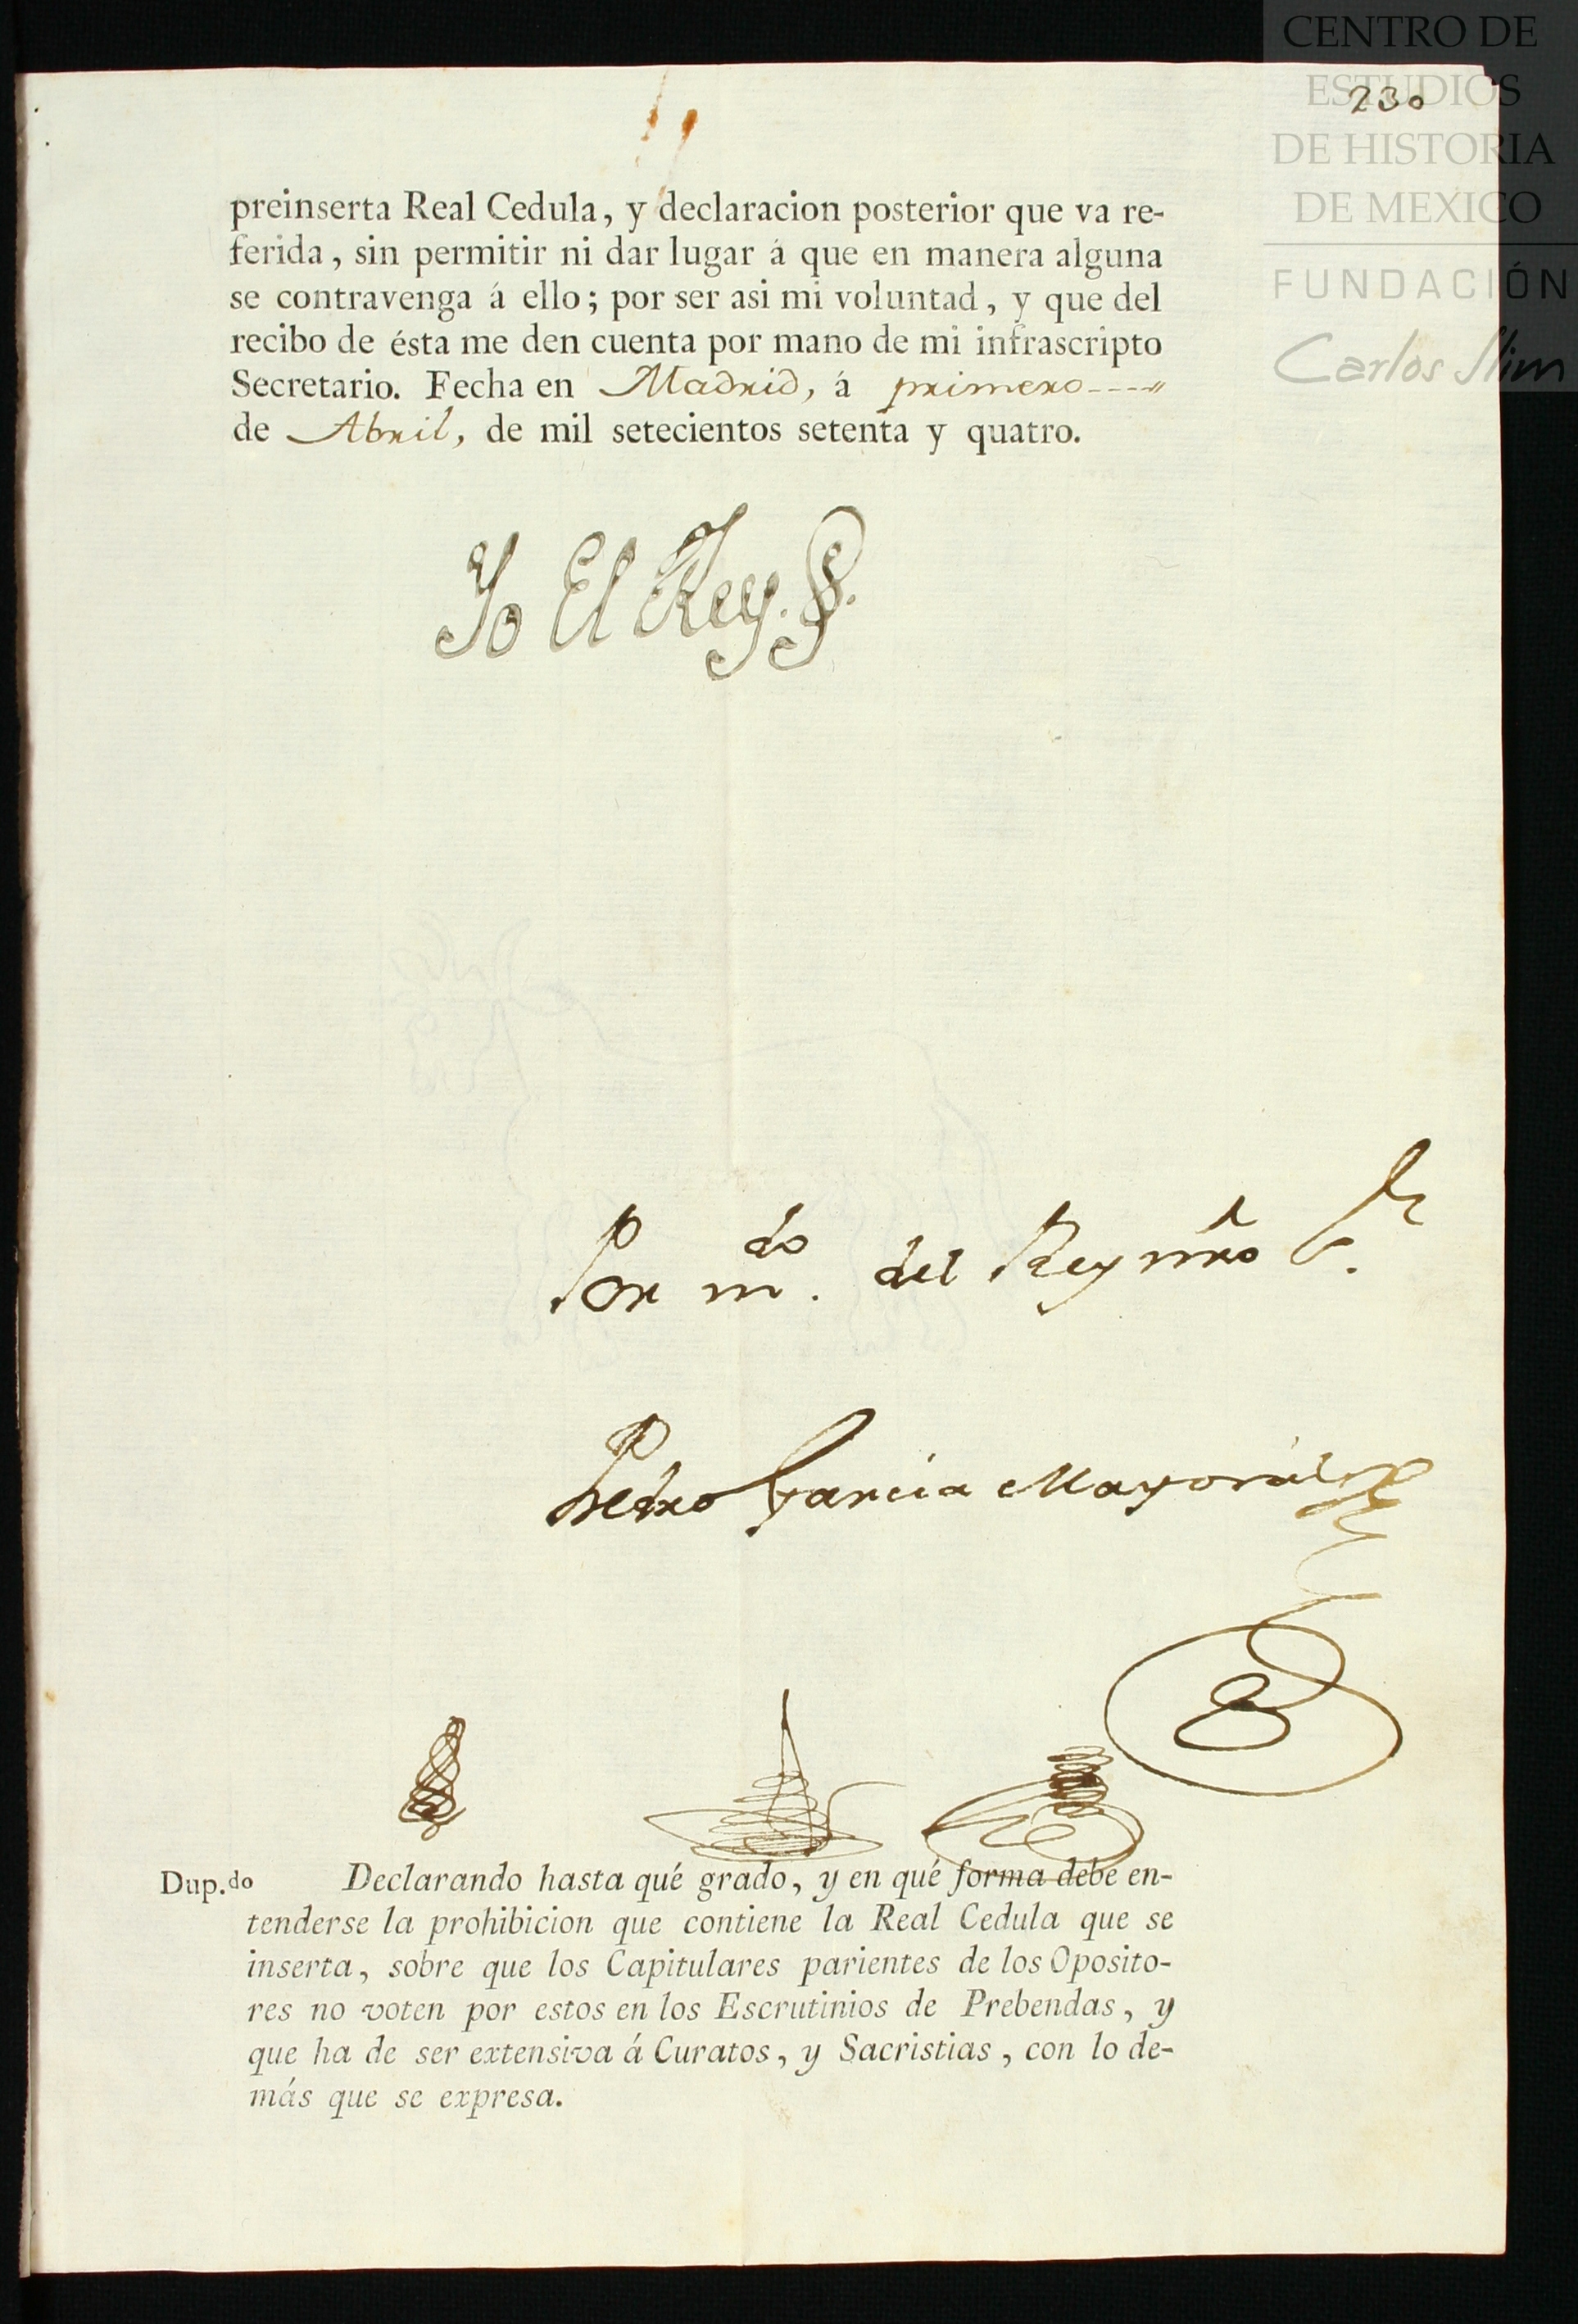 CENTRO DE
ESTUDIOS
DE HISTORIA
DE MEXICO
FUNDACIÓN
Carlos Slim
230
preinserta Real Cedula, y declaracion posterior que va re-
ferida, sin permitir ni dar lugar á que en manera alguna
se contravenga á ello; por ser asi mi voluntad, y que del
recibo de ésta me den cuenta por mano de mi infrascripto
Secretario. Fecha en Madrid, á primero----"
de Abril, de mil setecientos setenta y quatro.
Yo El Rey.
Por m.do del Rey nro S.r
Pedro Garcia Mayorál
Dup.do Declarando hasta qué grado, y en qué forma debe en-
tenderse la prohibicion que contiene la Real Cedula que se
inserta, sobre que los Capitulares parientes de los Oposito-
res no voten por estos en los Escrutinios de Prebendas, y
que ha de ser extensiva á Curatos, y Sacristias, con lo de-
más que se expresa.